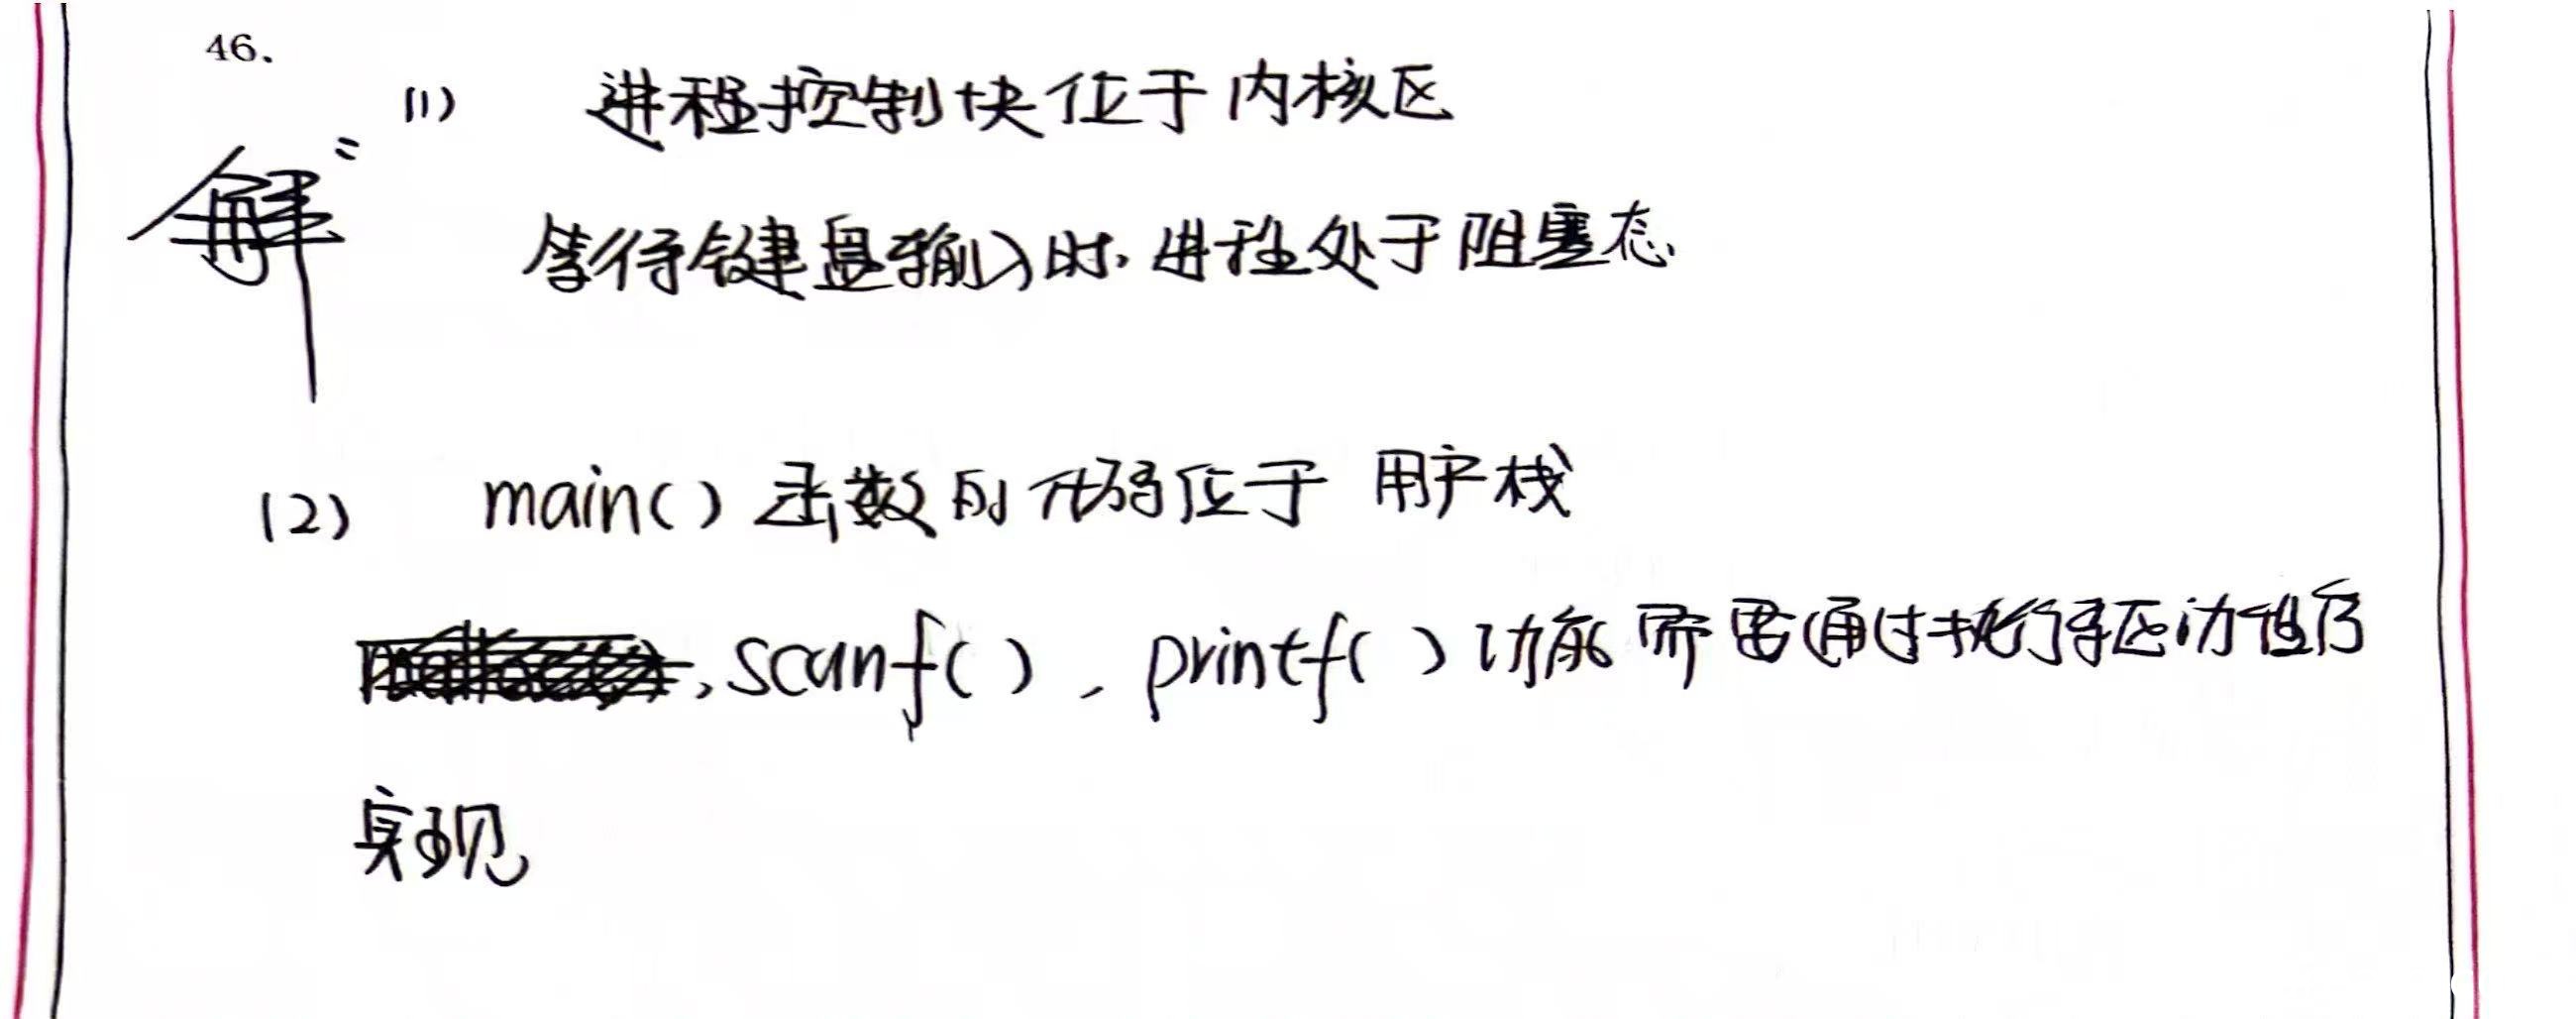 46.
(1) 进程控制块位于内核区
解:
等待键盘输入时,进程处于阻塞态
(2) main()函数的代码位于 用户栈
,scanf(),printf()功能需要通过执行驱动程序
实现